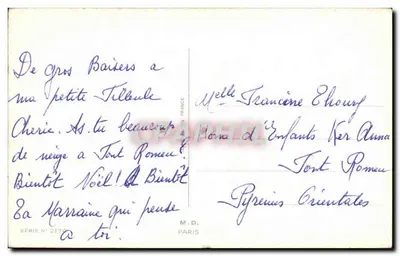 De gros Baisers a
ma petite Filleule
Cherie. As-tu beaucoup
de neige a Font Romeu?
Bientôt Noël! A Bientôt
Ta Marraine qui pense
a toi.
Melle Francine
Home d'Enfants Ker Anna
Font Romeu
Pyrénées Orientales
M.D.
PARIS